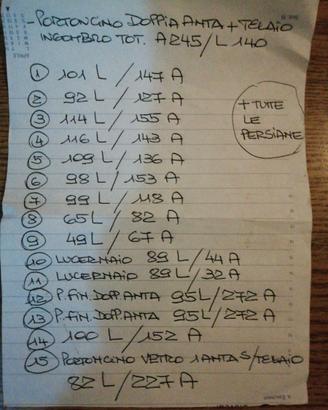 - PORTONCINO DOPPIA ANTA + TELAIO
INGOMBRO TOT. A 245/L 140
1 101 L / 147 A
2 92 L / 127 A
3 114 L / 155 A
4 116 L / 143 A
5 109 L / 136 A
6 98 L / 153 A
7 99 L / 118 A
8 65 L / 82 A
9 49 L / 67 A
10 LUCERNAIO 89 L / 44 A
11 LUCERNAIO 89 L / 32 A
12 P.FIN. DOPP ANTA 95 L / 272 A
13 P.FIN. DOPP ANTA 95 L / 272 A
14 100 L / 152 A
15 PORTONCINO VETRO 1 ANTA S/TELAIO
82 L / 227 A
+ TUTTE
LE
PERSIANE